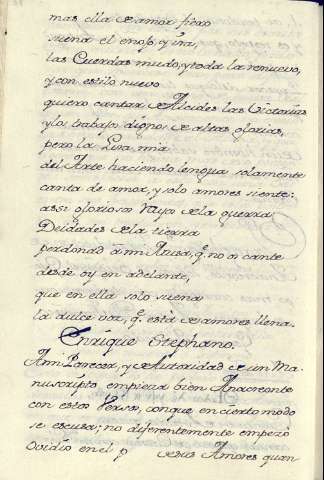 mas ella de amor fiero
suena el enojo, y ira,
las Cuerdas mudo, y toda la renuevo,
y con estilo nuevo
quiero cantar de Alcides las Victorias
y los trabajos dignos de altas glorias,
pero la Lira mia
del Arte haciendo lengua solamente
canta de amor, y solo amores siente:
assi gloriosos Rayos de la guerra
Deidades de la tierra
perdonad â mi Musa, q. no os cante
desde oy en adelante,
que en ella solo suena
la dulce voz, q. està de amores llena.
Enrique Stephano.
A mi Parecer, y de Autoridad de un Ma-
nuscripto empieza bien Anacreonte
con estos Versos, conque en cierto modo
se escusa; no diferentemente empezò
Ovidio en el p de sus Amores quan